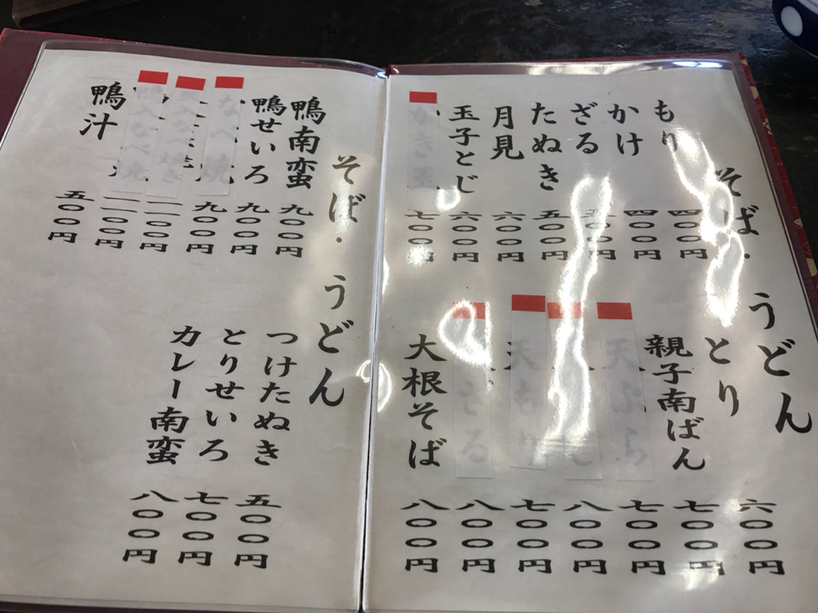 そば・うどん
もり 四〇〇円
かけ 四〇〇円
ざる 〇〇円
たぬき 五〇〇円
月見 六〇〇円
玉子とじ 六〇〇円
七〇〇円
とり 六〇〇円
親子南ばん 七〇〇円
天ぷら 七〇〇円
八〇〇円
天もり 七〇〇円
ざる 八〇〇円
大根そば 八〇〇円
そば・うどん
鴨南蛮 九〇〇円
鴨せいろ 九〇〇円
なべ焼 九〇〇円
一一〇〇円
一一〇〇円
鴨汁 五〇〇円
つけたぬき 五〇〇円
とりせいろ 七〇〇円
カレー南蛮 八〇〇円